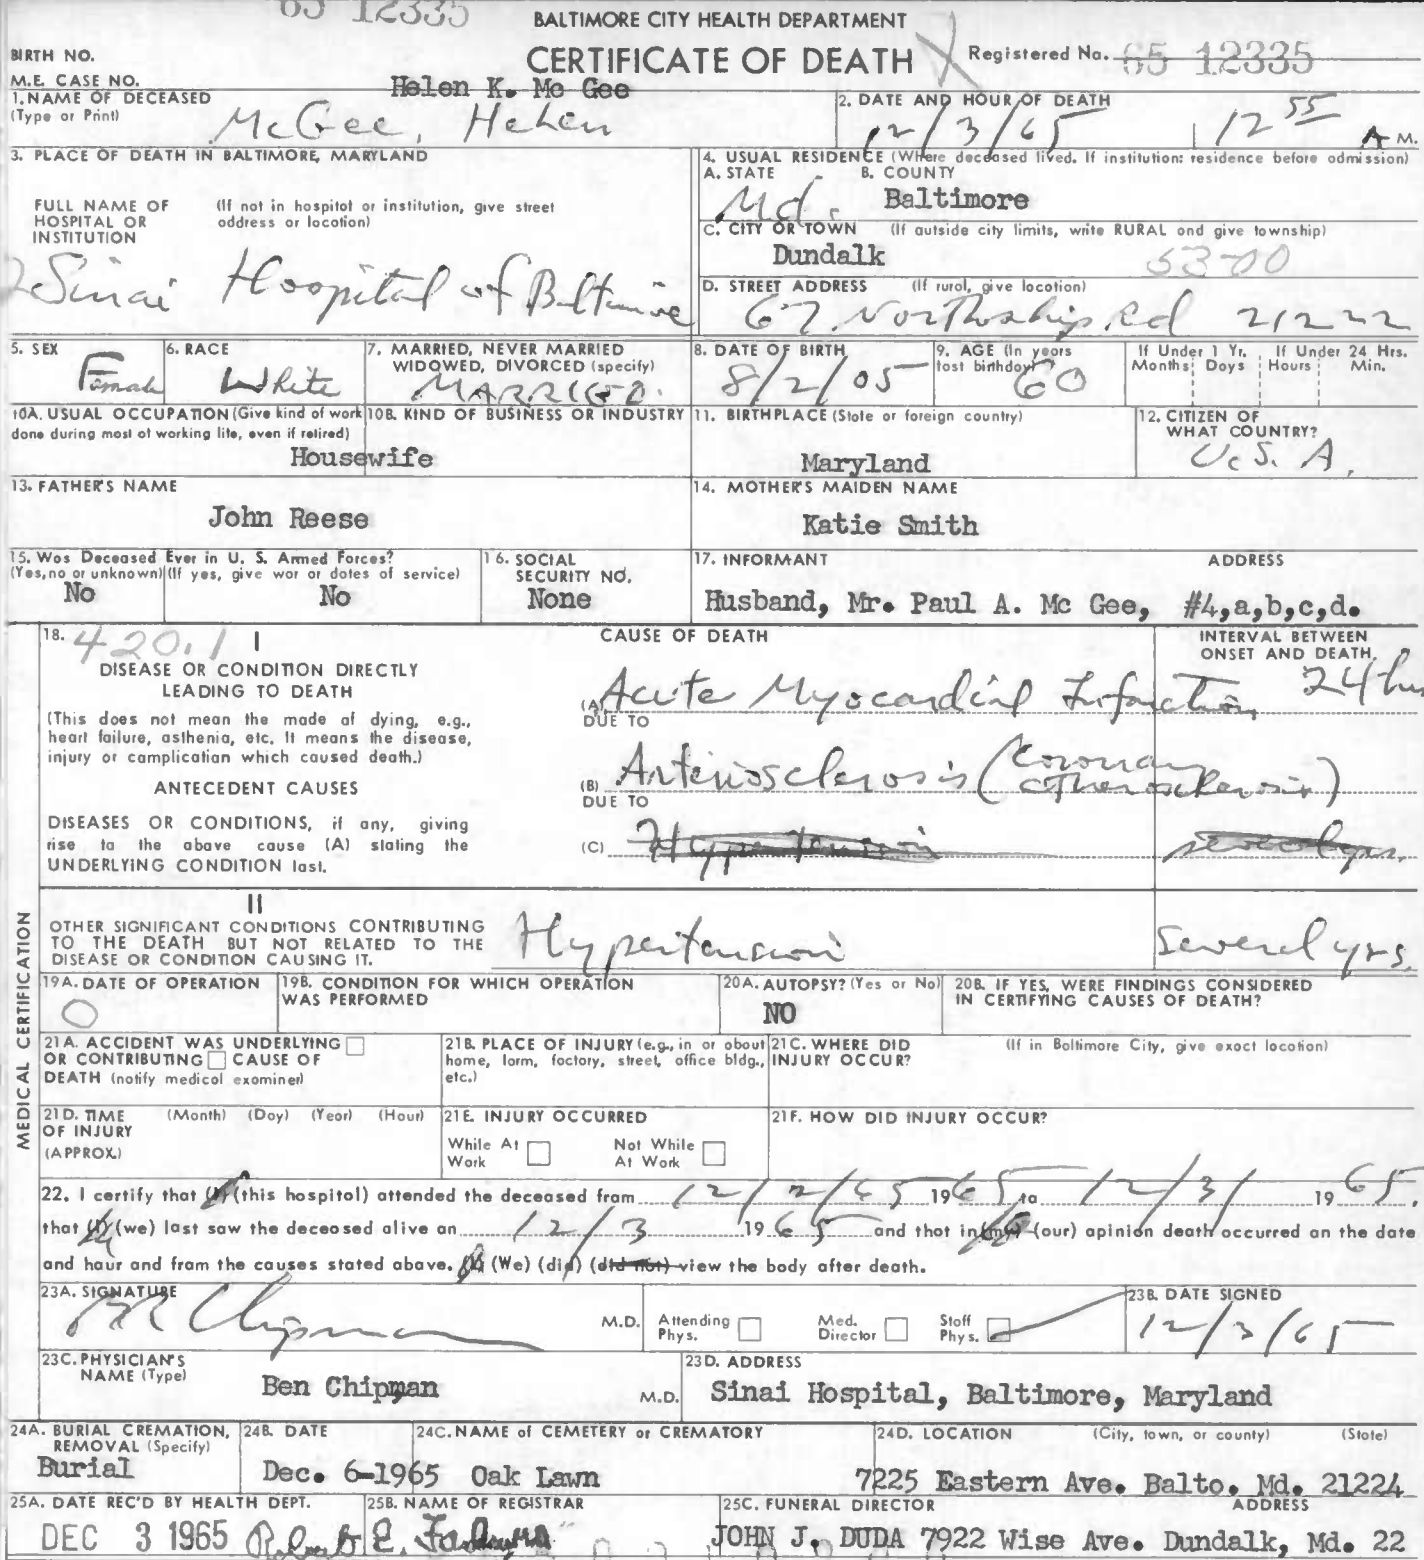 65 12335
BALTIMORE CITY HEALTH DEPARTMENT
BIRTH NO.
CERTIFICATE OF DEATH
Registered No. 65 12335
M.E. CASE NO.
Helen K. Mc Gee
1. NAME OF DECEASED
(Type or Print)
McGee, Helen
2. DATE AND HOUR OF DEATH
12/3/65 12 55 A M.
3. PLACE OF DEATH IN BALTIMORE, MARYLAND
FULL NAME OF
HOSPITAL OR
INSTITUTION
(If not in hospital or institution, give street
address or location)
Sinai Hospital of Baltimore
4. USUAL RESIDENCE (Where deceased lived. If institution: residence before admission)
A. STATE B. COUNTY
Md. Baltimore
C. CITY OR TOWN (If outside city limits, write RURAL and give township)
Dundalk 53-00
D. STREET ADDRESS (If rural, give location)
67 Northship Rd 21222
5. SEX
Female
6. RACE
White
7. MARRIED, NEVER MARRIED
WIDOWED, DIVORCED (specify)
MARRIED.
8. DATE OF BIRTH
8/2/05
9. AGE (In years
last birthday)
60
If Under 1 Yr.
Months Days
If Under 24 Hrs.
Hours Min.
10A. USUAL OCCUPATION (Give kind of work
done during most of working life, even if retired)
Housewife
10B. KIND OF BUSINESS OR INDUSTRY
11. BIRTHPLACE (State or foreign country)
Maryland
12. CITIZEN OF
WHAT COUNTRY?
U.S.A.
13. FATHER'S NAME
John Reese
14. MOTHER'S MAIDEN NAME
Katie Smith
15. Was Deceased Ever in U. S. Armed Forces?
(Yes, no or unknown) (If yes, give war or dates of service)
No No
16. SOCIAL
SECURITY NO.
None
17. INFORMANT ADDRESS
Husband, Mr. Paul A. Mc Gee, #4,a,b,c,d.
MEDICAL CERTIFICATION
18. 420.1 I
DISEASE OR CONDITION DIRECTLY
LEADING TO DEATH
(This does not mean the mode of dying, e.g.,
heart failure, asthenia, etc. It means the disease,
injury or complication which caused death.)
ANTECEDENT CAUSES
DISEASES OR CONDITIONS, if any, giving
rise to the above cause (A) stating the
UNDERLYING CONDITION last.
CAUSE OF DEATH
INTERVAL BETWEEN
ONSET AND DEATH.
(A) Acute Myocardial Infarction 24 hrs
DUE TO
(B) Arteriosclerosis (Coronary atherosclerosis)
DUE TO
(C) Hypertension several yrs.
II
OTHER SIGNIFICANT CONDITIONS CONTRIBUTING
TO THE DEATH BUT NOT RELATED TO THE
DISEASE OR CONDITION CAUSING IT.
Hypertension several yrs.
19A. DATE OF OPERATION
O
19B. CONDITION FOR WHICH OPERATION
WAS PERFORMED
20A. AUTOPSY? (Yes or No)
NO
20B. IF YES, WERE FINDINGS CONSIDERED
IN CERTIFYING CAUSES OF DEATH?
21A. ACCIDENT WAS UNDERLYING
OR CONTRIBUTING CAUSE OF
DEATH (notify medical examiner)
21B. PLACE OF INJURY (e.g., in or about
home, farm, factory, street, office bldg.,
etc.)
21C. WHERE DID
INJURY OCCUR?
(If in Baltimore City, give exact location)
21D. TIME (Month) (Day) (Year) (Hour)
OF INJURY
(APPROX.)
21E. INJURY OCCURRED
While At
Work
Not While
At Work
21F. HOW DID INJURY OCCUR?
22. I certify that (I) (this hospital) attended the deceased from 12/2/65 1965 to 12/3/ 1965,
that (I) (we) last saw the deceased alive on 12/3 1965 and that in (my) (our) opinion death occurred on the date
and hour and from the causes stated above. (I) (We) (did) (did not) view the body after death.
23A. SIGNATURE
Chipman M.D.
Attending
Phys.
Med.
Director
Staff
Phys.
23B. DATE SIGNED
12/3/65
23C. PHYSICIAN'S
NAME (Type)
Ben Chipman M.D.
23D. ADDRESS
Sinai Hospital, Baltimore, Maryland
24A. BURIAL CREMATION,
REMOVAL (Specify)
Burial
24B. DATE
Dec. 6-1965
24C. NAME of CEMETERY or CREMATORY
Oak Lawn
24D. LOCATION (City, town, or county) (State)
7225 Eastern Ave. Balto. Md. 21224
25A. DATE REC'D BY HEALTH DEPT.
DEC 3 1965
25B. NAME OF REGISTRAR
Robert E.
25C. FUNERAL DIRECTOR ADDRESS
JOHN J. DUDA 7922 Wise Ave. Dundalk, Md. 22